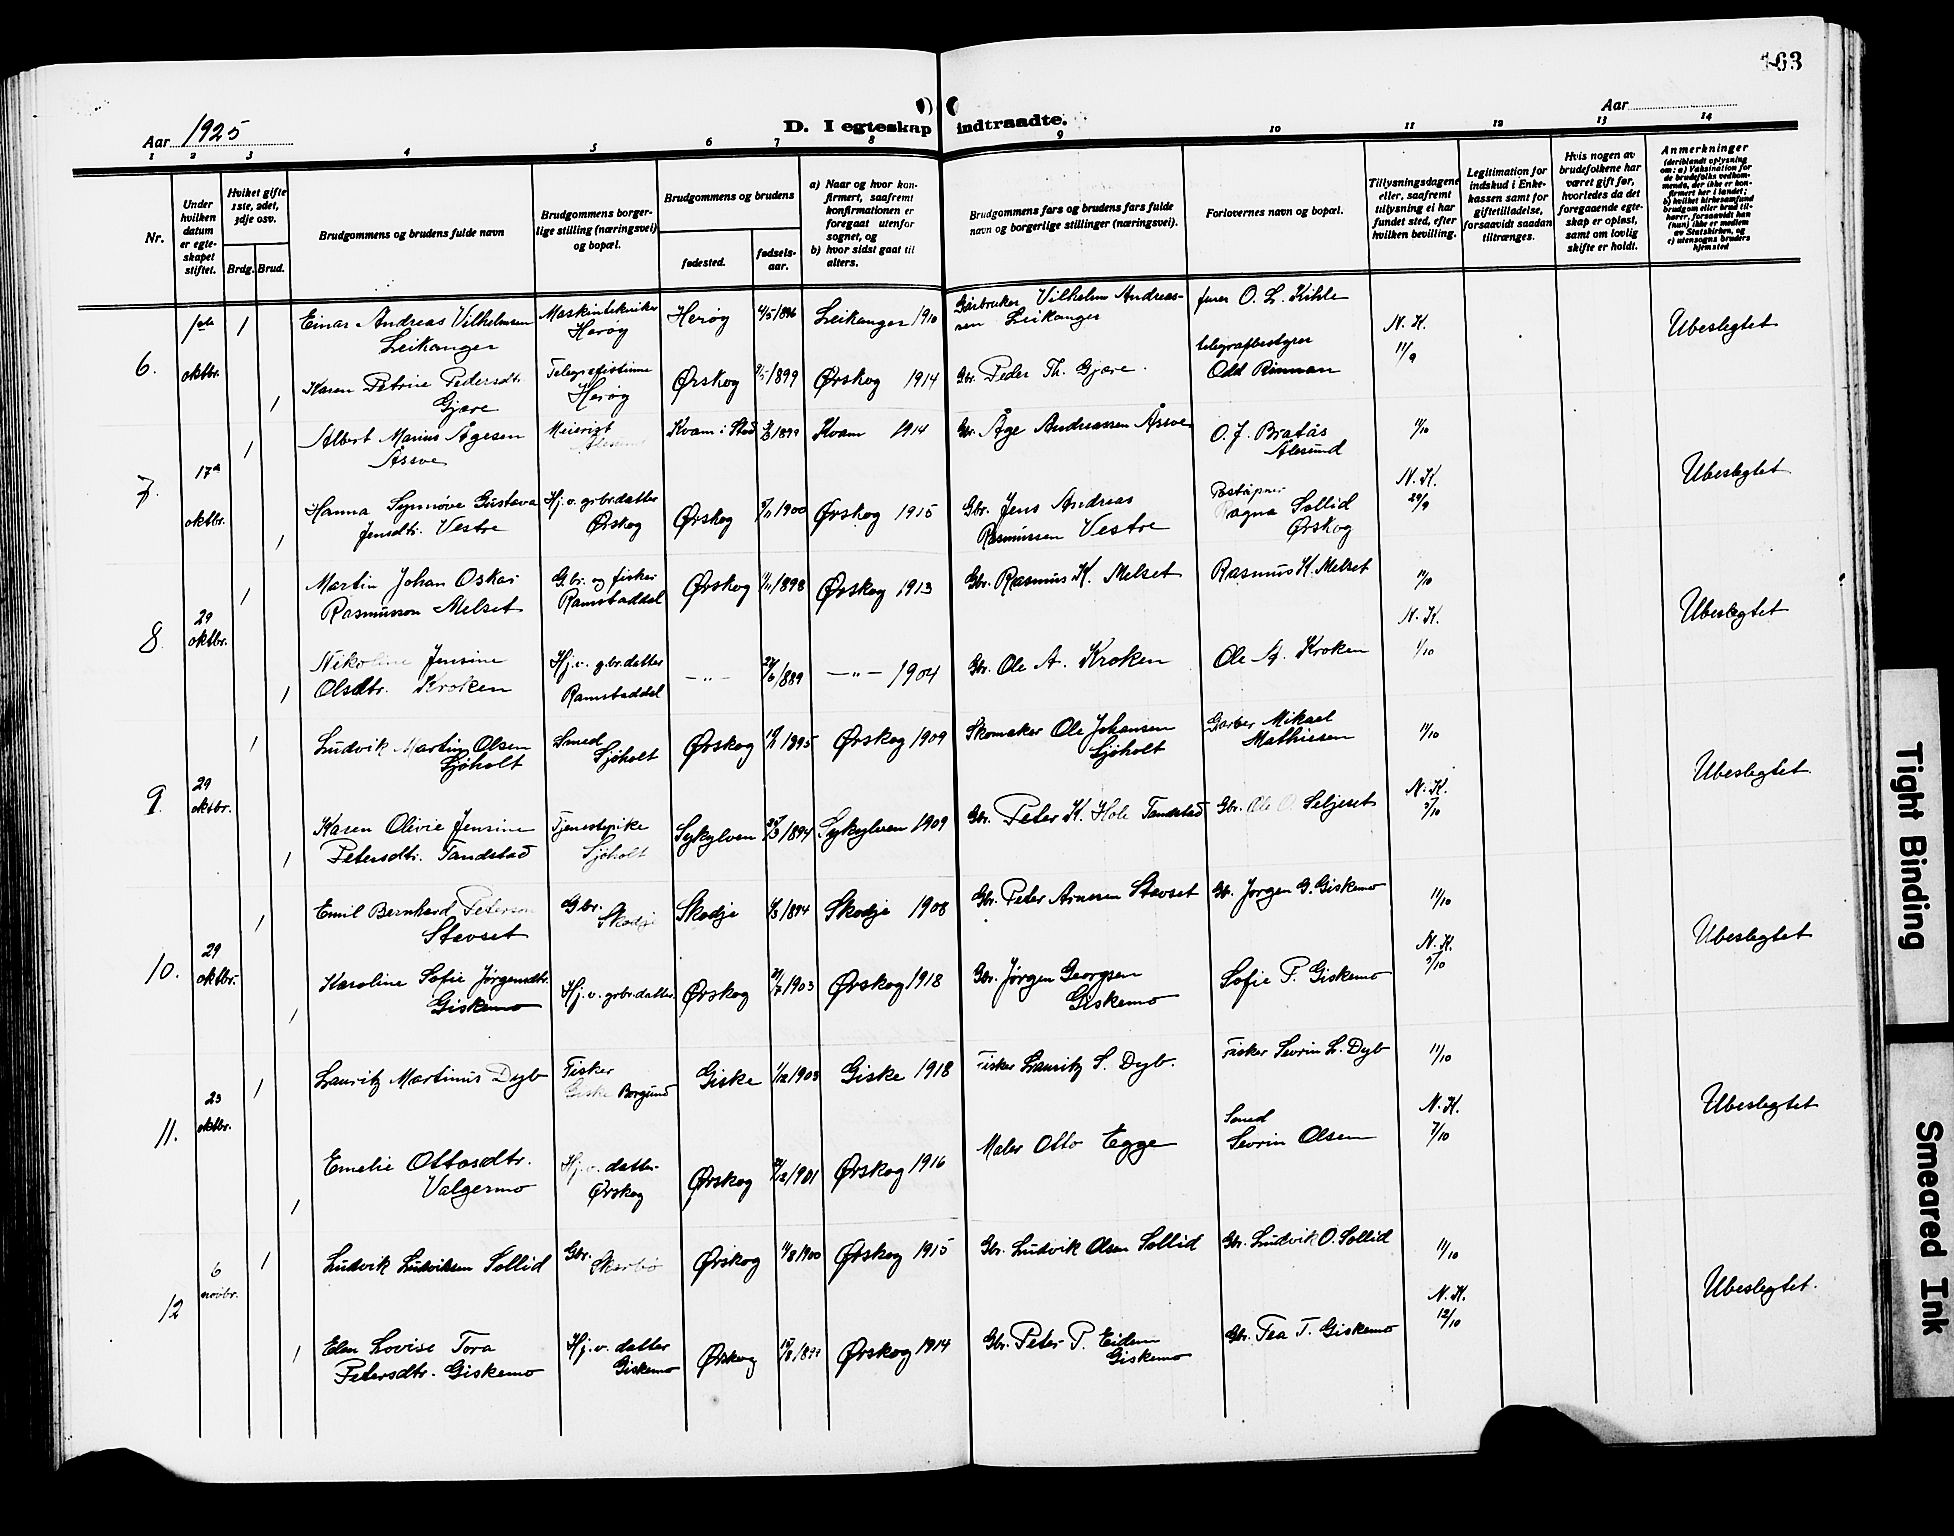 163
Aar 1925
Aar
D. I egteskap indtraadte.
1 2 3 4 5 6 7 8 9 10 11 12 13 14
Nr.
Under hvilken datum er egteskapet stiftet.
Hvilket gifte 1ste, 2det, 3dje osv.
Brdg. Brud.
Brudgommens og brudens fulde navn
Brudgommens borgerlige stilling (næringsvei) og bopæl.
Brudgommens og brudens
fødested.
fødselsaar.
a) Naar og hvor konfirmert, saafremt konfirmationen er foregaat utenfor sognet, og
b) hvor sidst gaat til alters.
Brudgommens fars og brudens fars fulde navn og borgerlige stillinger (næringsvei).
Forlovernes navn og bopæl.
Tillysningsdagene eller, saafremt tillysning ei har fundet sted, efter hvilken bevilling.
Legitimation for indskud i Enkekassen samt for giftetilladelse, forsaavidt saadan tiltrænges.
Hvis nogen av brudefolkene har været gift før, hvorledes da det foregaaende egteskap er opløst, samt om lovlig skifte er holdt.
Anmerkninger
(deriblandt oplysning om: a) Vaksination for de brudefolks vedkommende, der ikke er konfirmert her i landet; b) hvilket kirkesamfund brudgom eller brud tilhører, forsaavidt han (hun) ikke er medlem av Statskirken, og c) utensogns bruders hjemsted
6. 1ste oktbr.
1 Einar Andreas Vilhelmsen Leikanger Maskintekniker Herøy Herøy 1896 Leikanger 1910 Gårbruker Vilhelm Andreassen Leikanger O. L. Kihle
1 Karen Petrine Pedersdtr. Gjære Telegrafistinne Herøy Ørskog 1899 Ørskog 1914 Gbr. Peder Th. Gjære. telegrafbestyrer Odd Rinnan
N. K. 11/9 Ubeslegtet
7. 17de oktbr.
1 Albert Marius Ågesen Åssve Meierist Ålesund Kvam i Stod 1899 Kvam 1914 Gbr. Åge Andreassen Åssve O. J. Bratås Ålesund 11/10
1 Hanna Synnøve Gustava Jensdtr. Vestre Hj. v. grbr.datter Ørskog Ørskog 1900 Ørskog 1915 Gbr. Jens Andreas Rasmussen Vestre Poståpner Ragna Sollid Ørskog
N. K. 29/9 Ubeslegtet
8. 29 oktbr.
1 Martin Johan Oskar Rasmusson Melset G.br. og fisker Ramstaddal Ørskog 1898 Ørskog 1913 Gbr. Rasmus K. Melset Rasmus K. Melset 11/10
1 Nikoline Jensine Olsdtr. Kroken Hj. v. g.br.datter Ramstaddal —"— 1889 —"— 1904 Gbr. Ole A. Kroken Ole A. Kroken
N. K. 1/10 Ubeslegtet
9. 29 oktbr.
1 Ludvik Martin Olsen Sjøholt Smed Sjøholt Ørskog 1895 Ørskog 1909 Skomaker Ole Johansen Sjøholt Garver Mikael Mathissen 11/10
1 Karen Olivie Jensine Petersdtr. Tandstad Tjenestepike Sjøholt Sykylven 1894 Sykylven 1909 Gbr. Peter K. Hole Tandstad Gbr. Ole O. Seljeset
N. K. 5/10 Ubeslegtet.
10. 29 oktbr.
1 Emil Bernhard Peterson Stavset Gbr. Skodje Skodje 1894 Skodje 1908 Gbr. Peter Arnesen Stavset Gbr. Jørgen G. Giskemo 11/10
1 Karoline Sofie Jørgensdtr. Giskemo Hj. v. grbr.datter. Ørskog 1903 Ørskog 1918 Gbr. Jørgen Georgsen Giskemo Sofie P. Giskemo
N. K. 5/10 Ubeslegtet
11. 23 oktbr.
1 Lauritz Martinus Dyb Fisker Giske Borgund Giske 1903 Giske 1918 Fisker Lauritz S. Dyb. Fisker Sevrin L. Dyb 11/10
1 Emelie Ottosdtr. Valgermo Hj. v. datter Ørskog Ørskog 1901 Ørskog 1916 Maler Otto Egge Smed Sevrin Olsen
N. K. 7/10 Ubeslegtet
12 6 novbr.
1 Ludvik Ludviksen Sollid Gbr. Skarbø Ørskog 1900 Ørskog 1915 Gbr. Ludvik Olsen Sollid Gbr. Ludvik O. Sollid 11/10
1 Elen Lovise Tora Petersdtr. Giskemo Hj. v. datter Giskemo Ørskog 1899 Ørskog 1914 Gbr. Peter P. Eidem Giskemo Gbr. Tea T. Giskemo
N. K. 12/10 Ubeslegtet.
Tight Binding
Smeared Ink